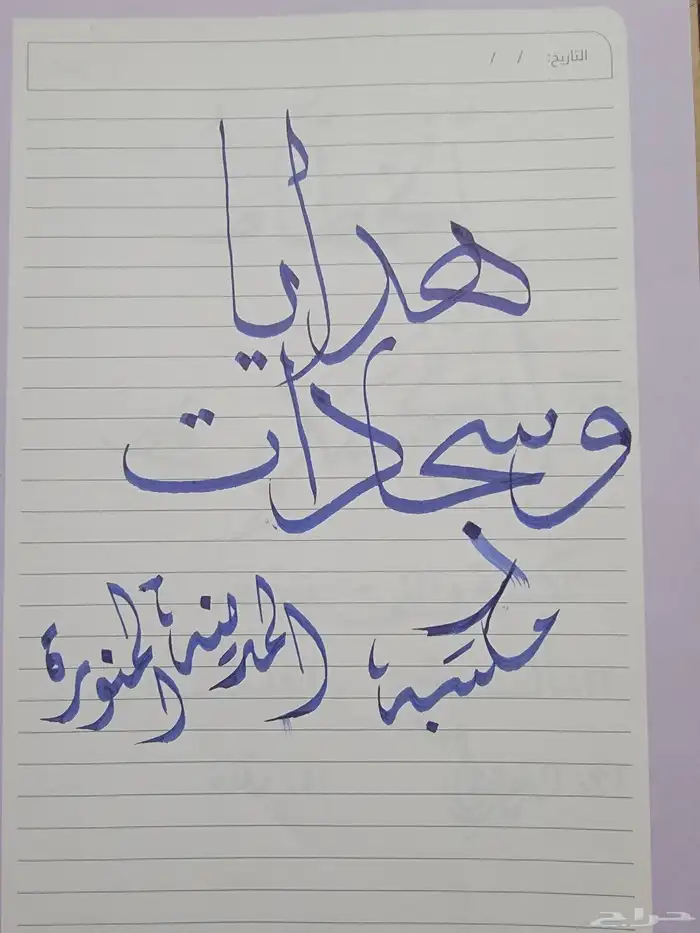 التاريخ: / /
هدايا
وسجادات
مكتبة المدينة المنورة
حراج